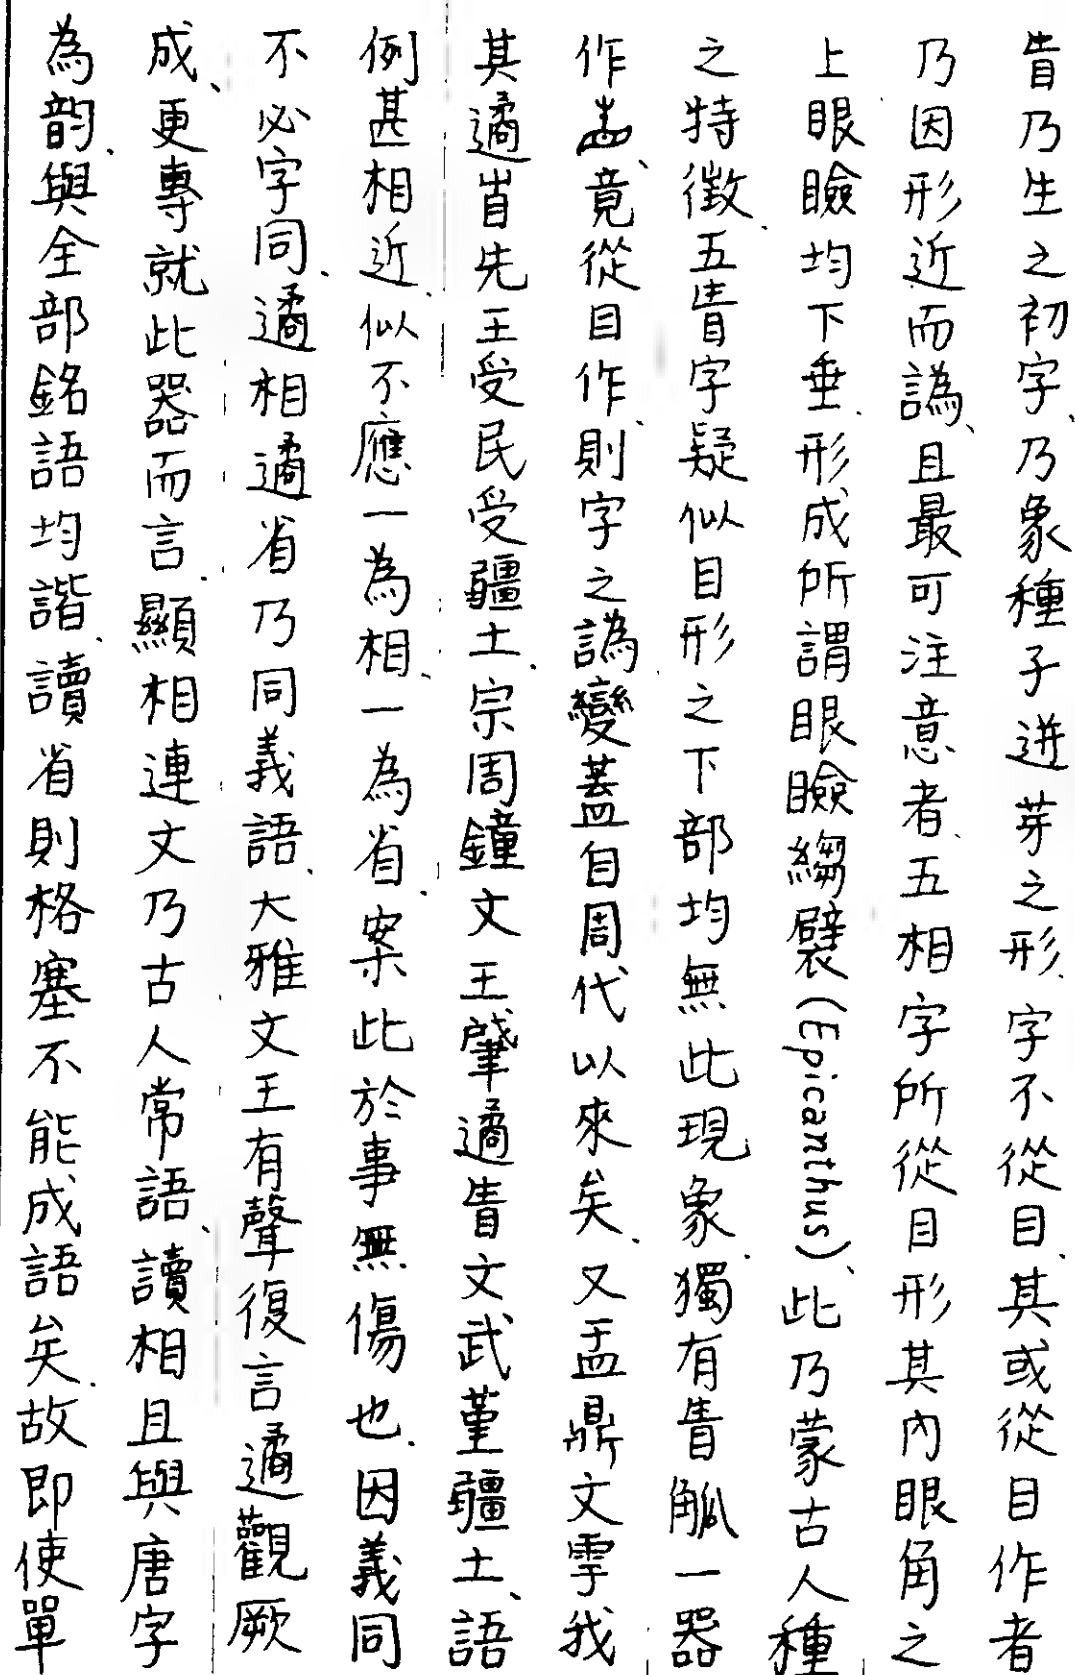 眚乃生之初字、乃象種子迸芽之形、字不從目、其或從目作者
乃因形近而譌、且最可注意者、五相字所從目形其內眼角之
上眼瞼均下垂、形成所謂眼瞼縐襞(Epicanthus)、此乃蒙古人種
之特徵、五眚字疑似目形之下部均無此現象、獨有眚觚一器
作、竟從目作、則字之譌變蓋自周代以來矣、又盂鼎文雩我
其遹眚先王受民受疆土、宗周鐘文王肈遹眚文武堇疆土、語
例甚相近、似不應一為相、一為省、案此於事無傷也、因義同
不必字同、遹相遹省乃同義語、大雅文王有聲復言遹觀厥
成、更專就此器而言、顯相連文乃古人常語、讀相且與唐字
為韵、與全部銘語均諧、讀省則格塞不能成語矣、故即使單